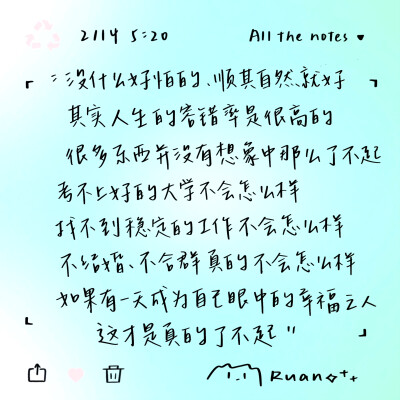 2114 5:20 All the notes ♥
“没什么好怕的、顺其自然就好
其实人生的容错率是很高的
很多东西并没有想象中那么了不起
考不上好的大学不会怎么样
找不到稳定的工作不会怎么样
不结婚、不合群真的不会怎么样
如果有一天成为自己眼中的幸福之人
这才是真的了不起”
Ruan